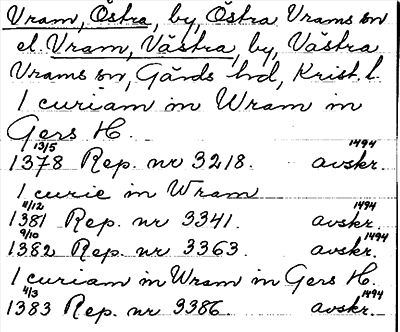 Vram, Östra, by, Östra Vrams sn
el. Vram, Västra, by, Västra
Vrams sn, Gärds hd, Krist. l.
1 curiam in Wram in
Gers H.
13/5 1494
1378 Rep. nr 3218. avskr.
1 curie in Wram
11/12 1494
1381 Rep. nr 3341. avskr.
9/10 1494
1382 Rep. nr 3363. avskr.
1 curiam in Wram in Gers H.
4/3 1494
1383 Rep. nr 3386 avskr.